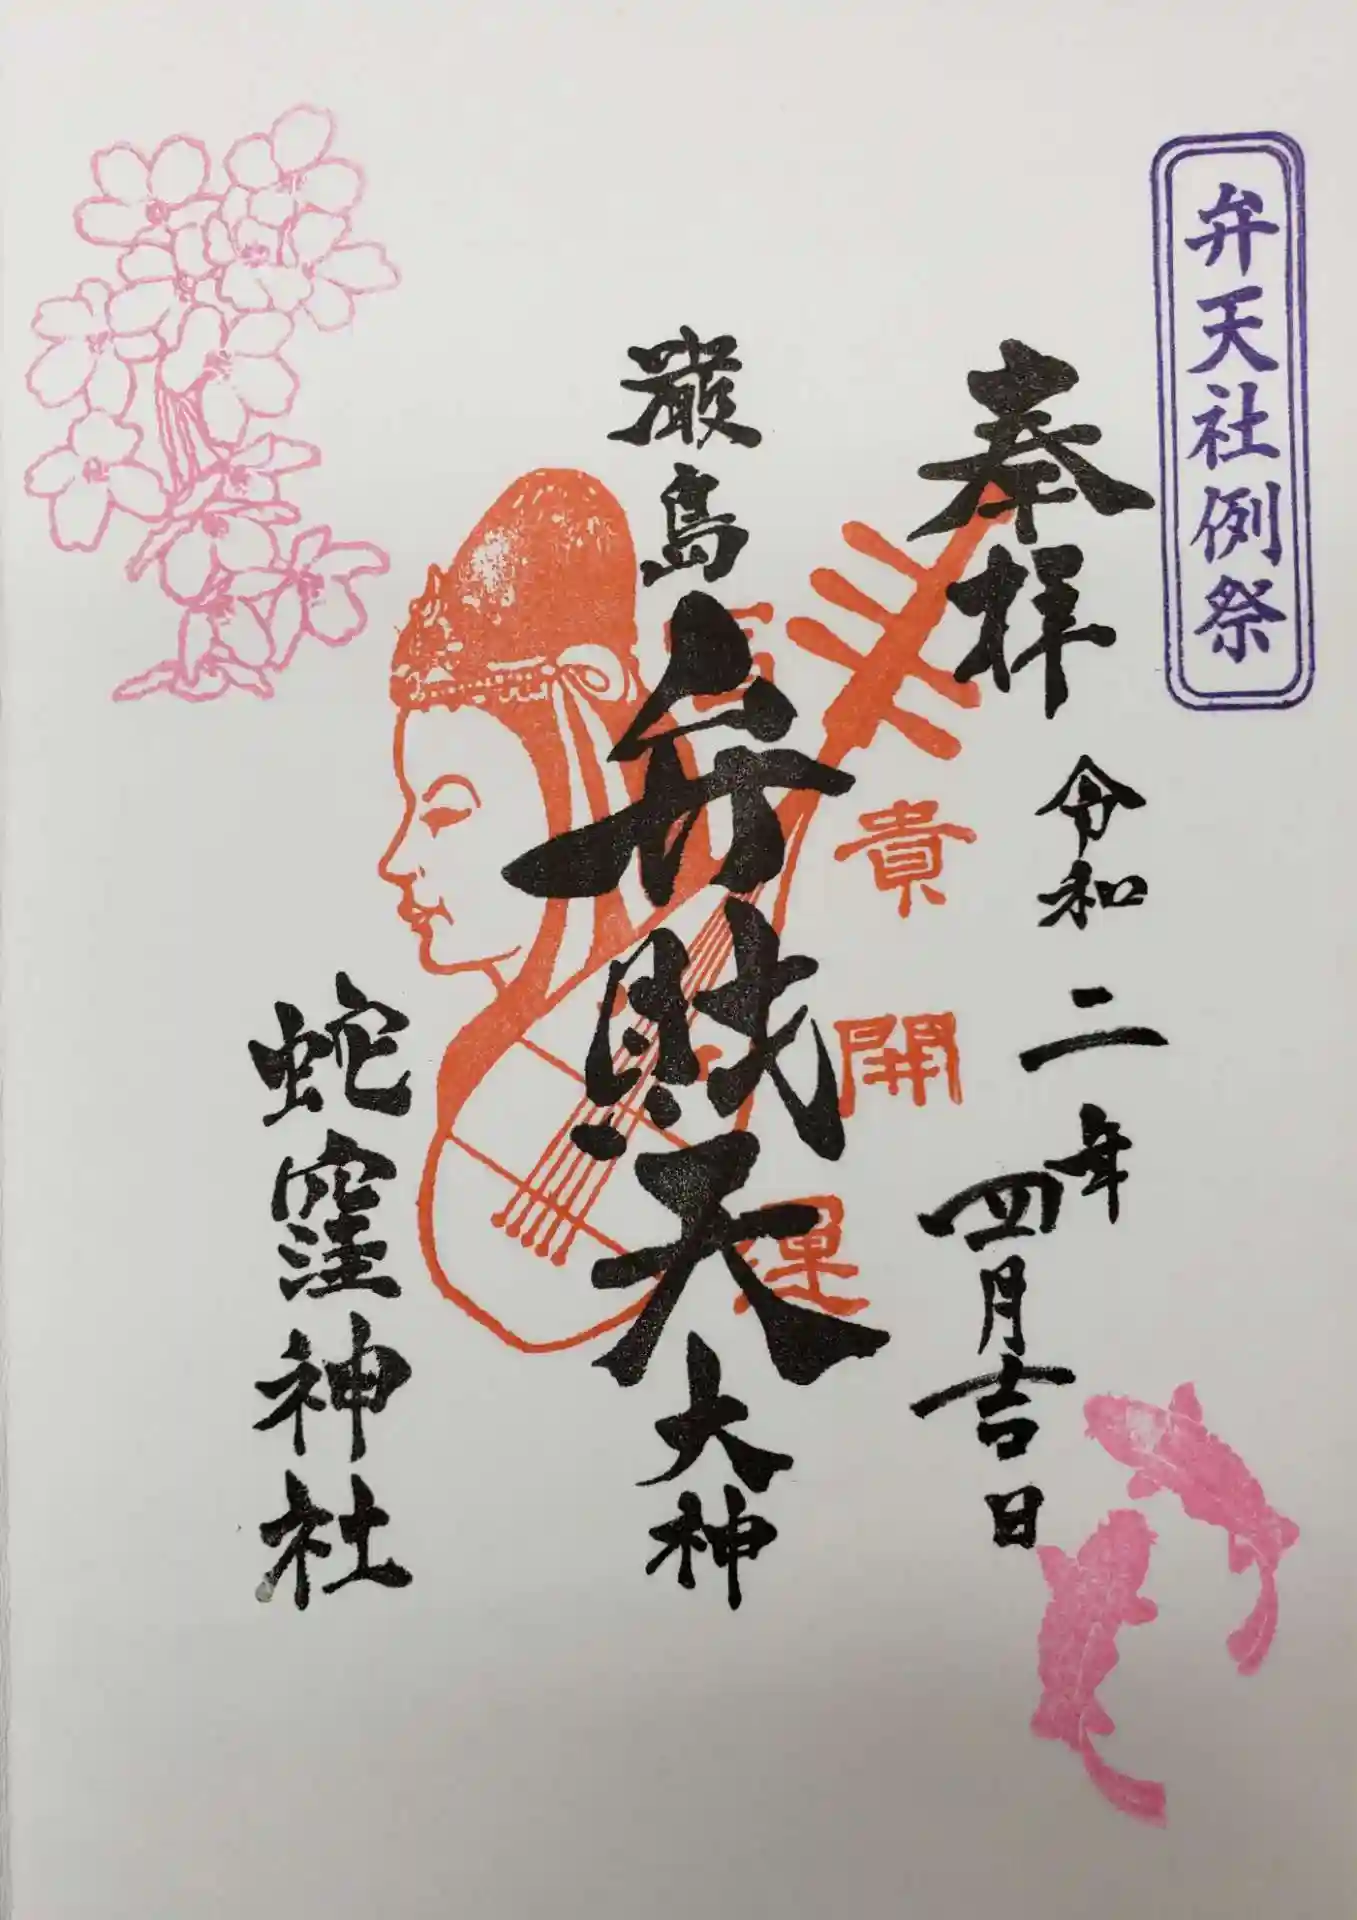 弁天社例祭
奉拝
令和二年
四月吉日
富貴開運
厳島
弁財天
大神
蛇窪神社